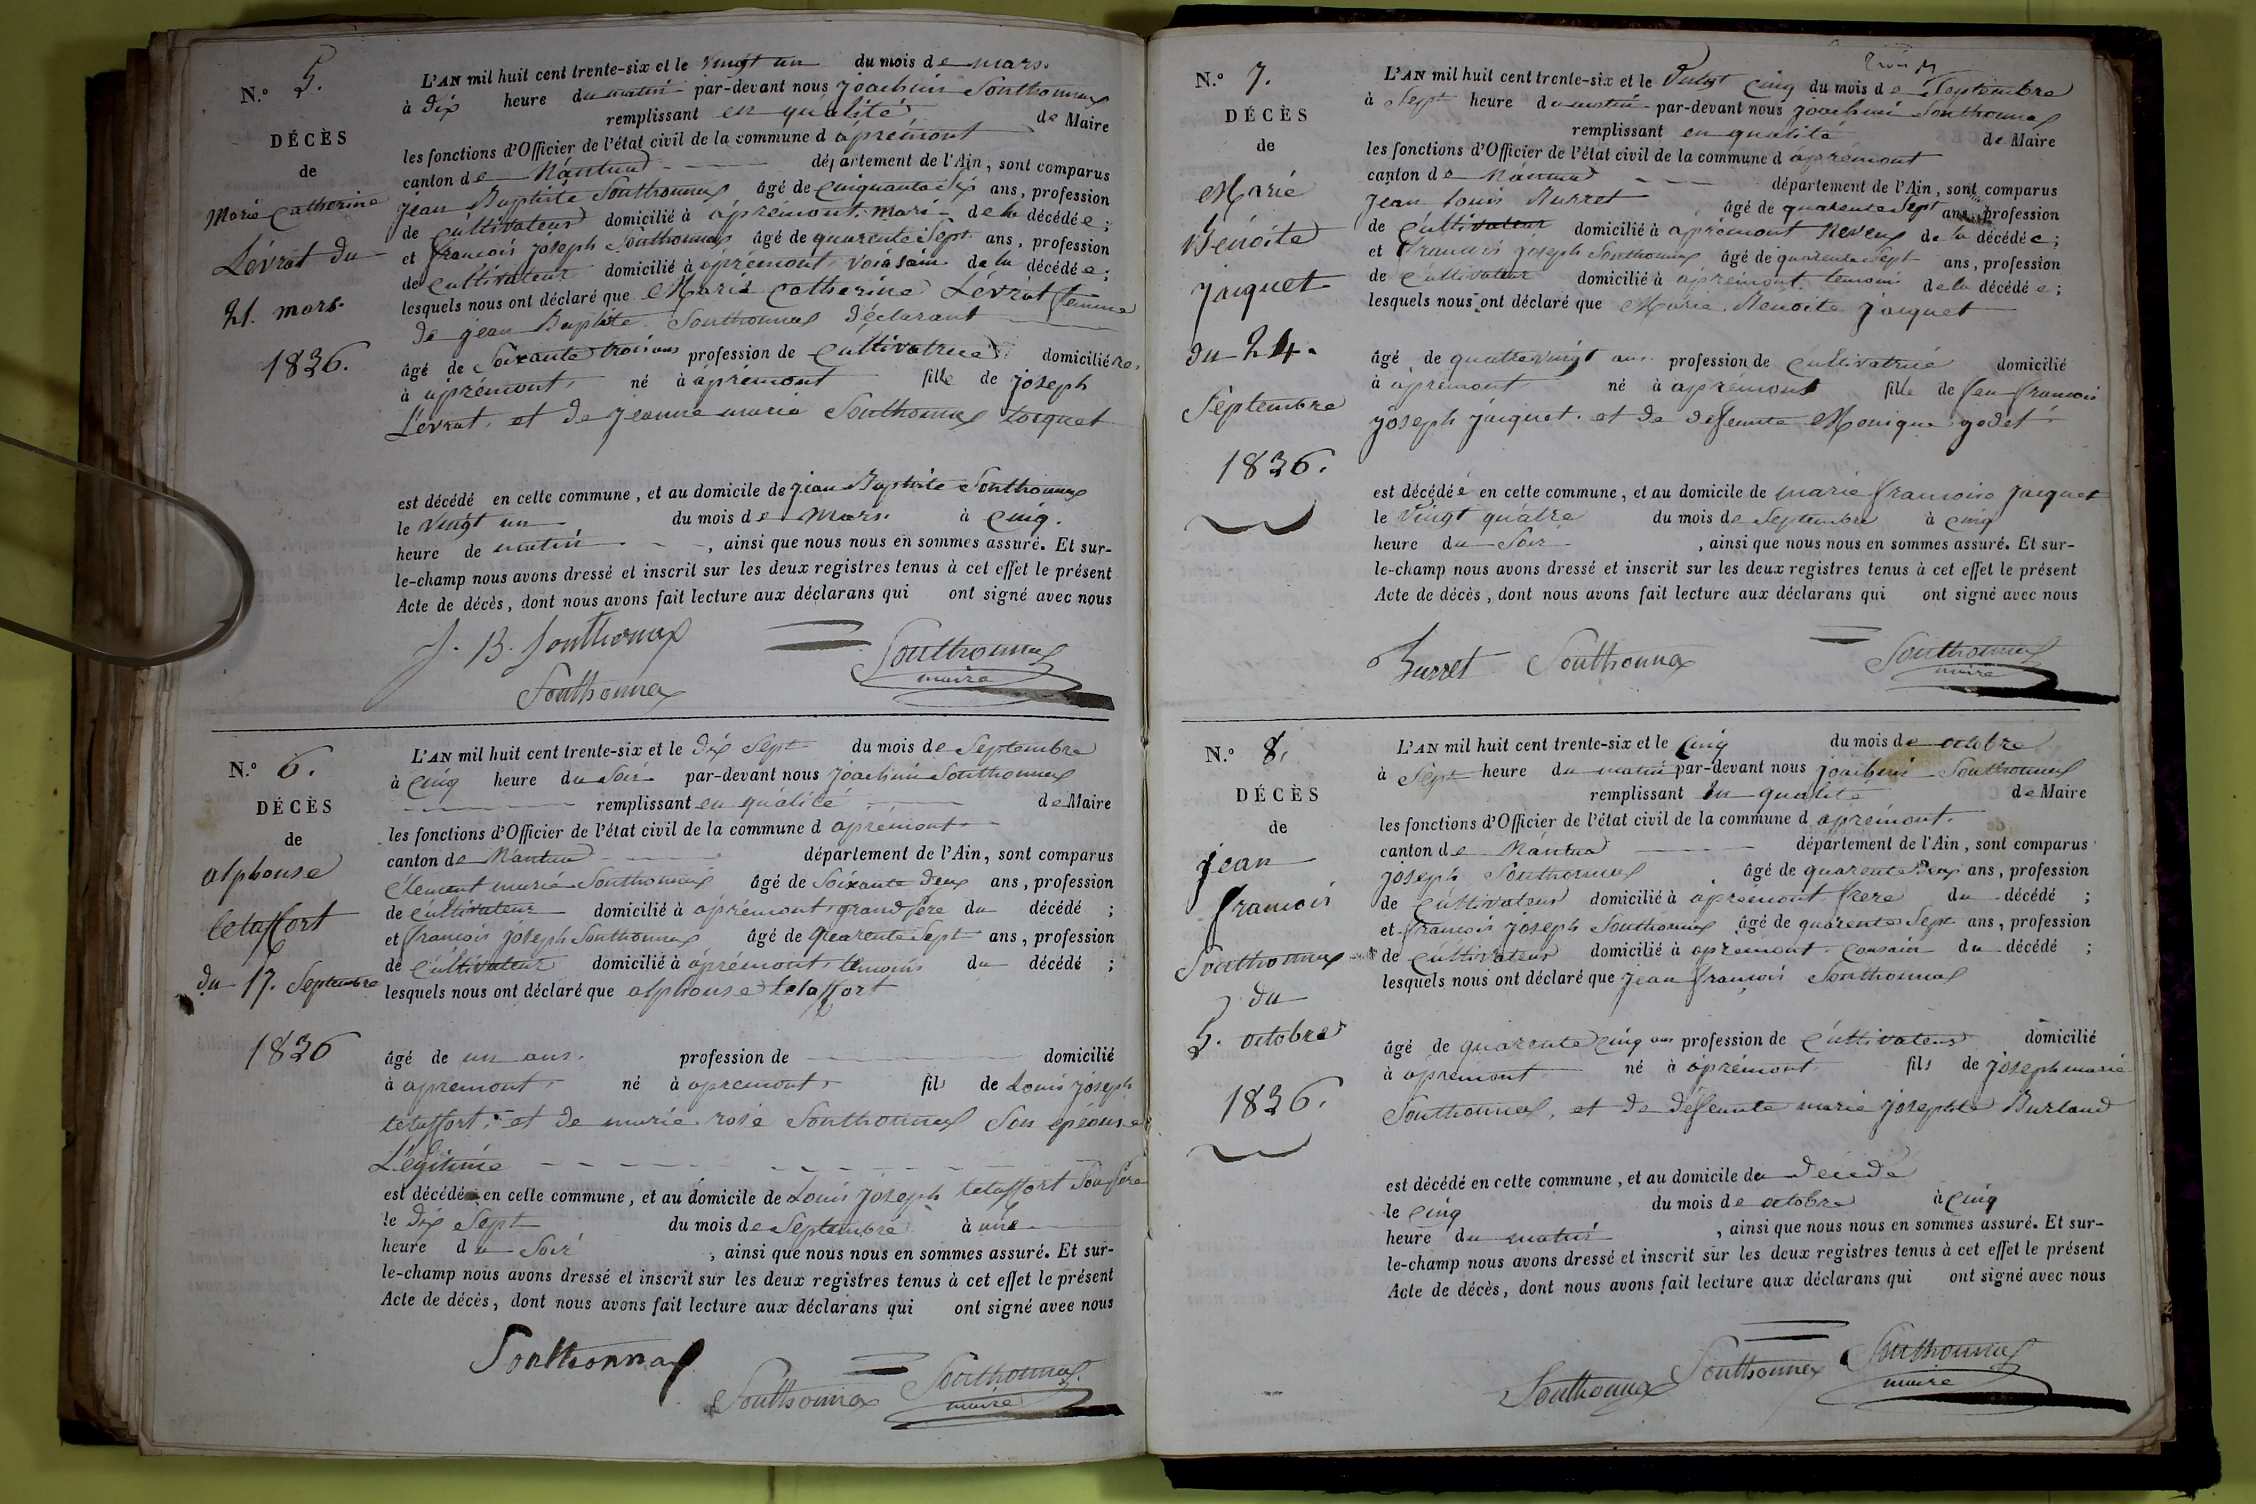 N.° 5.
DÉCÈS
de
Marie Catherine
Lévrat du
21. mars
1836.
L'AN mil huit cent trente-six et le vingt un du mois de mars.
à dix heure du matin par-devant nous joachim Sonthonnax
remplissant en qualité de Maire
les fonctions d'Officier de l'état civil de la commune d aprémont
canton de Nantua département de l'Ain, sont comparus
jean Baptiste Sonthonnax âgé de cinquante dix ans, profession
de cultivateur domicilié à aprémont, mari de la décédée;
et francois joseph Sonthonnax âgé de quarente Sept ans, profession
de cultivateur domicilié à aprémont voisain de la décédée;
lesquels nous ont déclaré que Marie Catherine Lévrat femme
de jean Baptiste Sonthonnax déclarant
âgé de Soixante trois ans profession de cultivatrice domicilié
à aprémont, né à aprémont fille de joseph
Lévrat, et de jeanne marie Sonthonnax
est décédé en cette commune, et au domicile de jean Baptiste Sonthonnax
le vingt un du mois de Mars à cinq.
heure de matin, ainsi que nous nous en sommes assuré. Et sur-
le-champ nous avons dressé et inscrit sur les deux registres tenus à cet effet le présent
Acte de décès, dont nous avons fait lecture aux déclarans qui ont signé avec nous
J. B. Sonthonax
Sonthonnax
Sonthonnax
maire
N.° 6.
DÉCÈS
de
alphonse
letaffort
du 17. Septembre
1836
L'AN mil huit cent trente-six et le dix Sept du mois de Septembre
à cinq heure du Soir par-devant nous joachim Sonthonnax
remplissant en qualité de Maire
les fonctions d'Officier de l'état civil de la commune d aprémont
canton de Nantua département de l'Ain, sont comparus
Clément marie Sonthonnax âgé de Soixante deux ans, profession
de cultivateur domicilié à aprémont, grand père du décédé;
et francois joseph Sonthonnax âgé de quarente Sept ans, profession
de cultivateur domicilié à aprémont, temoins du décédé;
lesquels nous ont déclaré que alphonse letaffort
âgé de un ans. profession de domicilié
à apremont, né à apremont, fils de Louis joseph
letaffort, et de marie rose Sonthonnax Son epeouse
Légitime
est décédé en cette commune, et au domicile de Louis joseph letaffort Son père
le dix Sept du mois de Septembre à une
heure du Soir, ainsi que nous nous en sommes assuré. Et sur-
le-champ nous avons dressé et inscrit sur les deux registres tenus à cet effet le présent
Acte de décès, dont nous avons fait lecture aux déclarans qui ont signé avec nous
Sonthonnax
Sonthonnax
Sonthonnax
maire
N.° 7.
DÉCÈS
de
Marie
Benoite
jaiquet
du 24.
Septembre
1836.
L'AN mil huit cent trente-six et le Vingt Cinq du mois de Septembre
à Sept heure du matin par-devant nous joachim Sonthonnax
remplissant en qualité de Maire
les fonctions d'Officier de l'état civil de la commune d aprémont
canton de Nantua département de l'Ain, sont comparus
jean Louis Burret âgé de quarente Sept ans, profession
de cultivateur domicilié à aprémont Neveux de la décédée;
et francois joseph Sonthonnax âgé de quarente Sept ans, profession
de cultivateur domicilié à aprémont, temoin de la décédée;
lesquels nous ont déclaré que Marie Benoite jaiquet
âgé de quatre vingt ans. profession de cultivatrice domicilié
à aprémont né à aprémont fille de feu francois
joseph jaiquet. et de defeunte Monique godet.
est décédée en cette commune, et au domicile de marie francoise jaiquet
le vingt quatre du mois de Septembre à cinq
heure du Soir, ainsi que nous nous en sommes assuré. Et sur-
le-champ nous avons dressé et inscrit sur les deux registres tenus à cet effet le présent
Acte de décès, dont nous avons fait lecture aux déclarans qui ont signé avec nous
Burret Sonthonnax Sonthonnax
maire
N.° 8.
DÉCÈS
de
jean
francois
Sonthonnax
du
5. octobre
1836.
L'AN mil huit cent trente-six et le Cinq du mois de octobre
à Sept heure du matin par-devant nous joachim Sonthonnax
remplissant en qualité de Maire
les fonctions d'Officier de l'état civil de la commune d aprémont.
canton de Nantua département de l'Ain, sont comparus
joseph Sonthonnax âgé de quarente deux ans, profession
de cultivateur domicilié à aprémont frere du décédé;
et francois joseph Sonthonnax âgé de quarente Sept ans, profession
de cultivateur domicilié à apremont. Cousain du décédé;
lesquels nous ont déclaré que jean francois Sonthonnax
âgé de quarente cinq ans profession de cultivateur domicilié
à aprémont né à aprémont. fils de joseph marie
Sonthonnax, et de defeunte marie josephte Burland
est décédé en cette commune, et au domicile du décédé
le cinq du mois de octobre à cinq
heure du matin, ainsi que nous nous en sommes assuré. Et sur-
le-champ nous avons dressé et inscrit sur les deux registres tenus à cet effet le présent
Acte de décès, dont nous avons fait lecture aux déclarans qui ont signé avec nous
Sonthonnax Sonthonnax Sonthonnax
maire